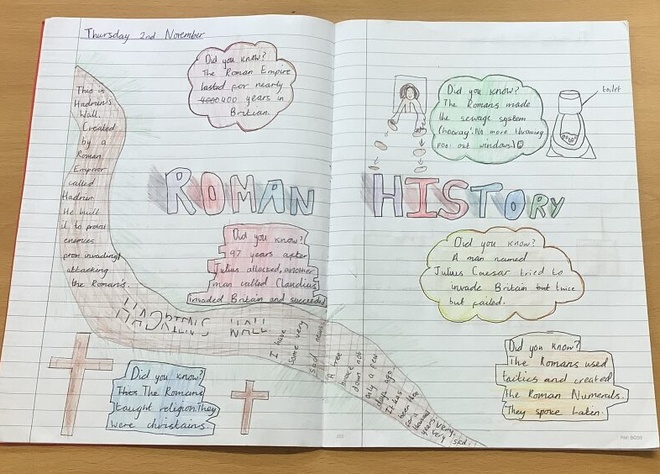 Thursday 2nd November
Did you know?
The Roman Empire
lasted for nearly
400 years in
Britian.
This is
Hadrien's
Wall.
Created
by a
Roman
Emperor
called
Hadrien
He built
it to
enemies
from invading/
attacking
the Romans.
ROMAN HISTORY
Did you know?
The Romans made
the sewage system
(hooray! No more throwing
poo out windows!)
toilet
Did you know?
97 years after
Julius attacked, another
man called Claudius
invaded Britain and succeeded
Did you know?
A man named
Julius Caesar tried to
invade Britain but twice
but failed.
HADRIENS WALL
I have
some very
sad news
A tree
broke
down not
only a few
days ago.
It has
been there
years
very, very sad.
Did you know?
This The Romans
taught religion. They
were christains.
Did you know?
The Romans used
tactics and created
the Roman Numerals.
They spoke Laten.